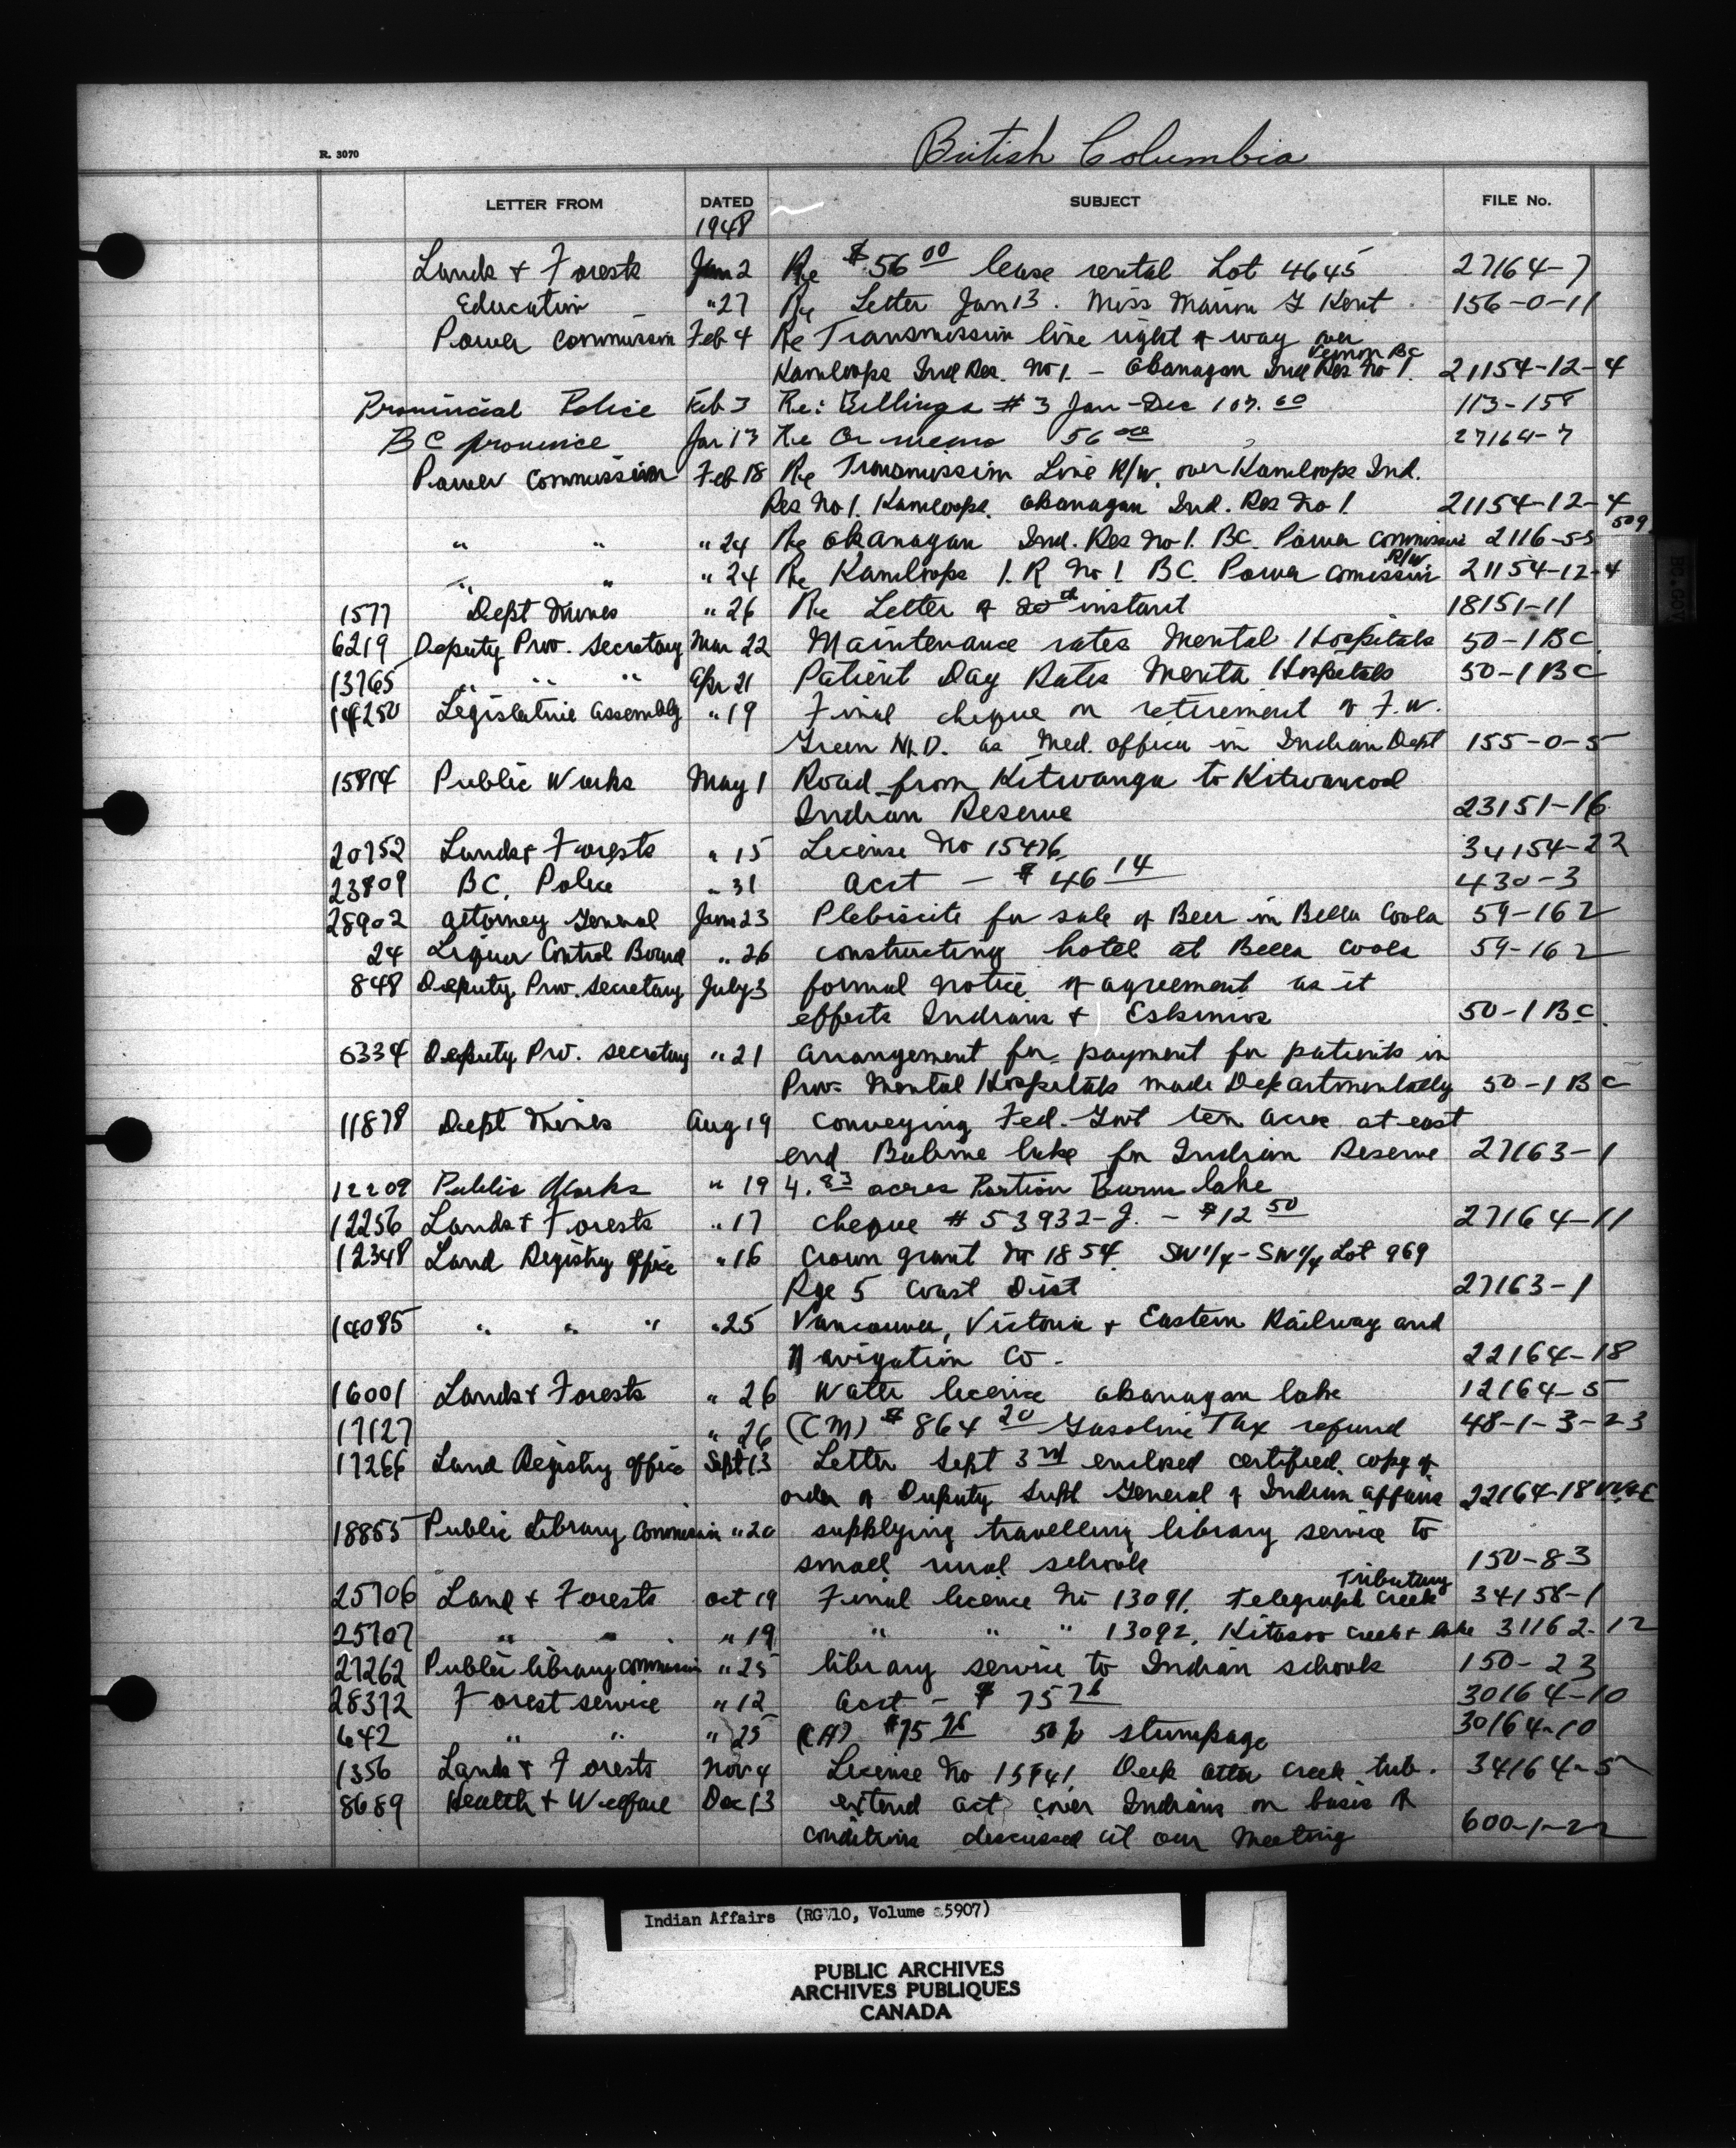 British Columbia
R. 3070
LETTER FROM DATED SUBJECT FILE No.
1948
Lands & Forests Jan 2 Re $56 00 lease rental Lot 4645 27164-7
Education " 27 Re Letter Jan 13. Miss Marion G Kent 156-0-11
Power Commission Feb 4 Re Transmission line right of way over
Vernon BC
Kamloops Ind Res. No 1. - Okanagan Ind Res No 1. 21154-12-4
Provincial Police Feb 3 Re: Billings #3 Jan-Dec 107.00 113-158
BC province Jan 13 Re Or memo 56 00 27164-7
Power Commission Feb 18 Re Transmission Line R/W. over Kamloops Ind.
Res No 1. Kamloops. Okanagan Ind. Res No 1. 21154-12-4
" " " 24 Re Okanagan Ind. Res No 1. BC. Power Commission 2116-53 509
R/W
" " " 24 Re Kamloops I.R No 1 BC. Power Comission 21154-12-4
1577 Dept Mines " 26 Re Letter of 20th instant 18151-11
6219 Deputy Prov. Secretary Mar 22 Maintenance rates Mental Hospitals 50-1 BC
13765 " " " Apr 21 Patient Day Rates Menta Hospitals 50-1 BC
14250 Legislative Assembly " 19 Final cheque on retirement of F.W.
Green M.D. as Med. officer in Indian Dept 155-0-5
15814 Public Works May 1 Road from Kitwanga to Kitwancool
Indian Reserve 23151-16
20752 Lands & Forests " 15 License No 15476 34154-22
23809 BC. Police " 31 Acct - $46 14 430-3
28902 Attorney General June 23 Plebiscite for sale of Beer in Bella Coola 59-162
24 Liquor Control Board " 26 constructing hotel at Bella Coola 59-162
848 Deputy Prov. Secretary July 3 formal notice of agreement as it
effects Indians & Eskimos 50-1 BC.
6334 Deputy Prv. Secretary " 21 arrangement for payment for patients in
Prov. Mental Hospitals made Departmentally 50-1 BC
11878 Dept Mines Aug 19 conveying Fed. Govt ten acres at east
end Babine lake for Indian Reserve 27163-1
12209 Public Works " 19 4.83 acres Portion Burns lake
12256 Lands & Forests " 17 cheque #53932-J. - $12 50 27164-11
12348 Land Registry Office " 16 Crown grant No 1854. SW 1/4 - SW 1/4 Lot 969
Rge 5 Coast Dist 27163-1
14085 " " " " 25 Vancouver, Victoria & Eastern Railway and
Navigation Co. 22164-18
16001 Lands & Forests " 26 Water licence Okanagan lake 12164-5
17127 " 26 (CM) $864 20 Gasoline Tax refund 48-1-3-23
17266 Land Registry Office Sept 13 Letter Sept 3rd enclosed certified copy of
order of Deputy Supt General of Indian Affairs 22164-18 VV&E
18855 Public Library Commission " 20 supplying travelling library service to
small rural schools 150-83
Tributary
25706 Land & Forests Oct 19 Final licence No 13091. Telegraph Creek 34158-1
25707 " " " 19 " " " 13092, Kitasoo Creek & lake 31162-12
27262 Public library commission " 25 library service to Indian schools 150-23
28372 Forest service " 12 Acct - $75 76 30164-10
642 " " " 25 (CA) $75 76 50% stumpage 30164-10
1356 Lands & Forests Nov 4 License No 15741. Deek Creek trib. 34164-5
8689 Health & Welfare Dec 13 extend act cover Indians on basis of
conditions discussed at our meeting 600-1-22
Indian Affairs (RG 10, Volume 5907)
PUBLIC ARCHIVES
ARCHIVES PUBLIQUES
CANADA